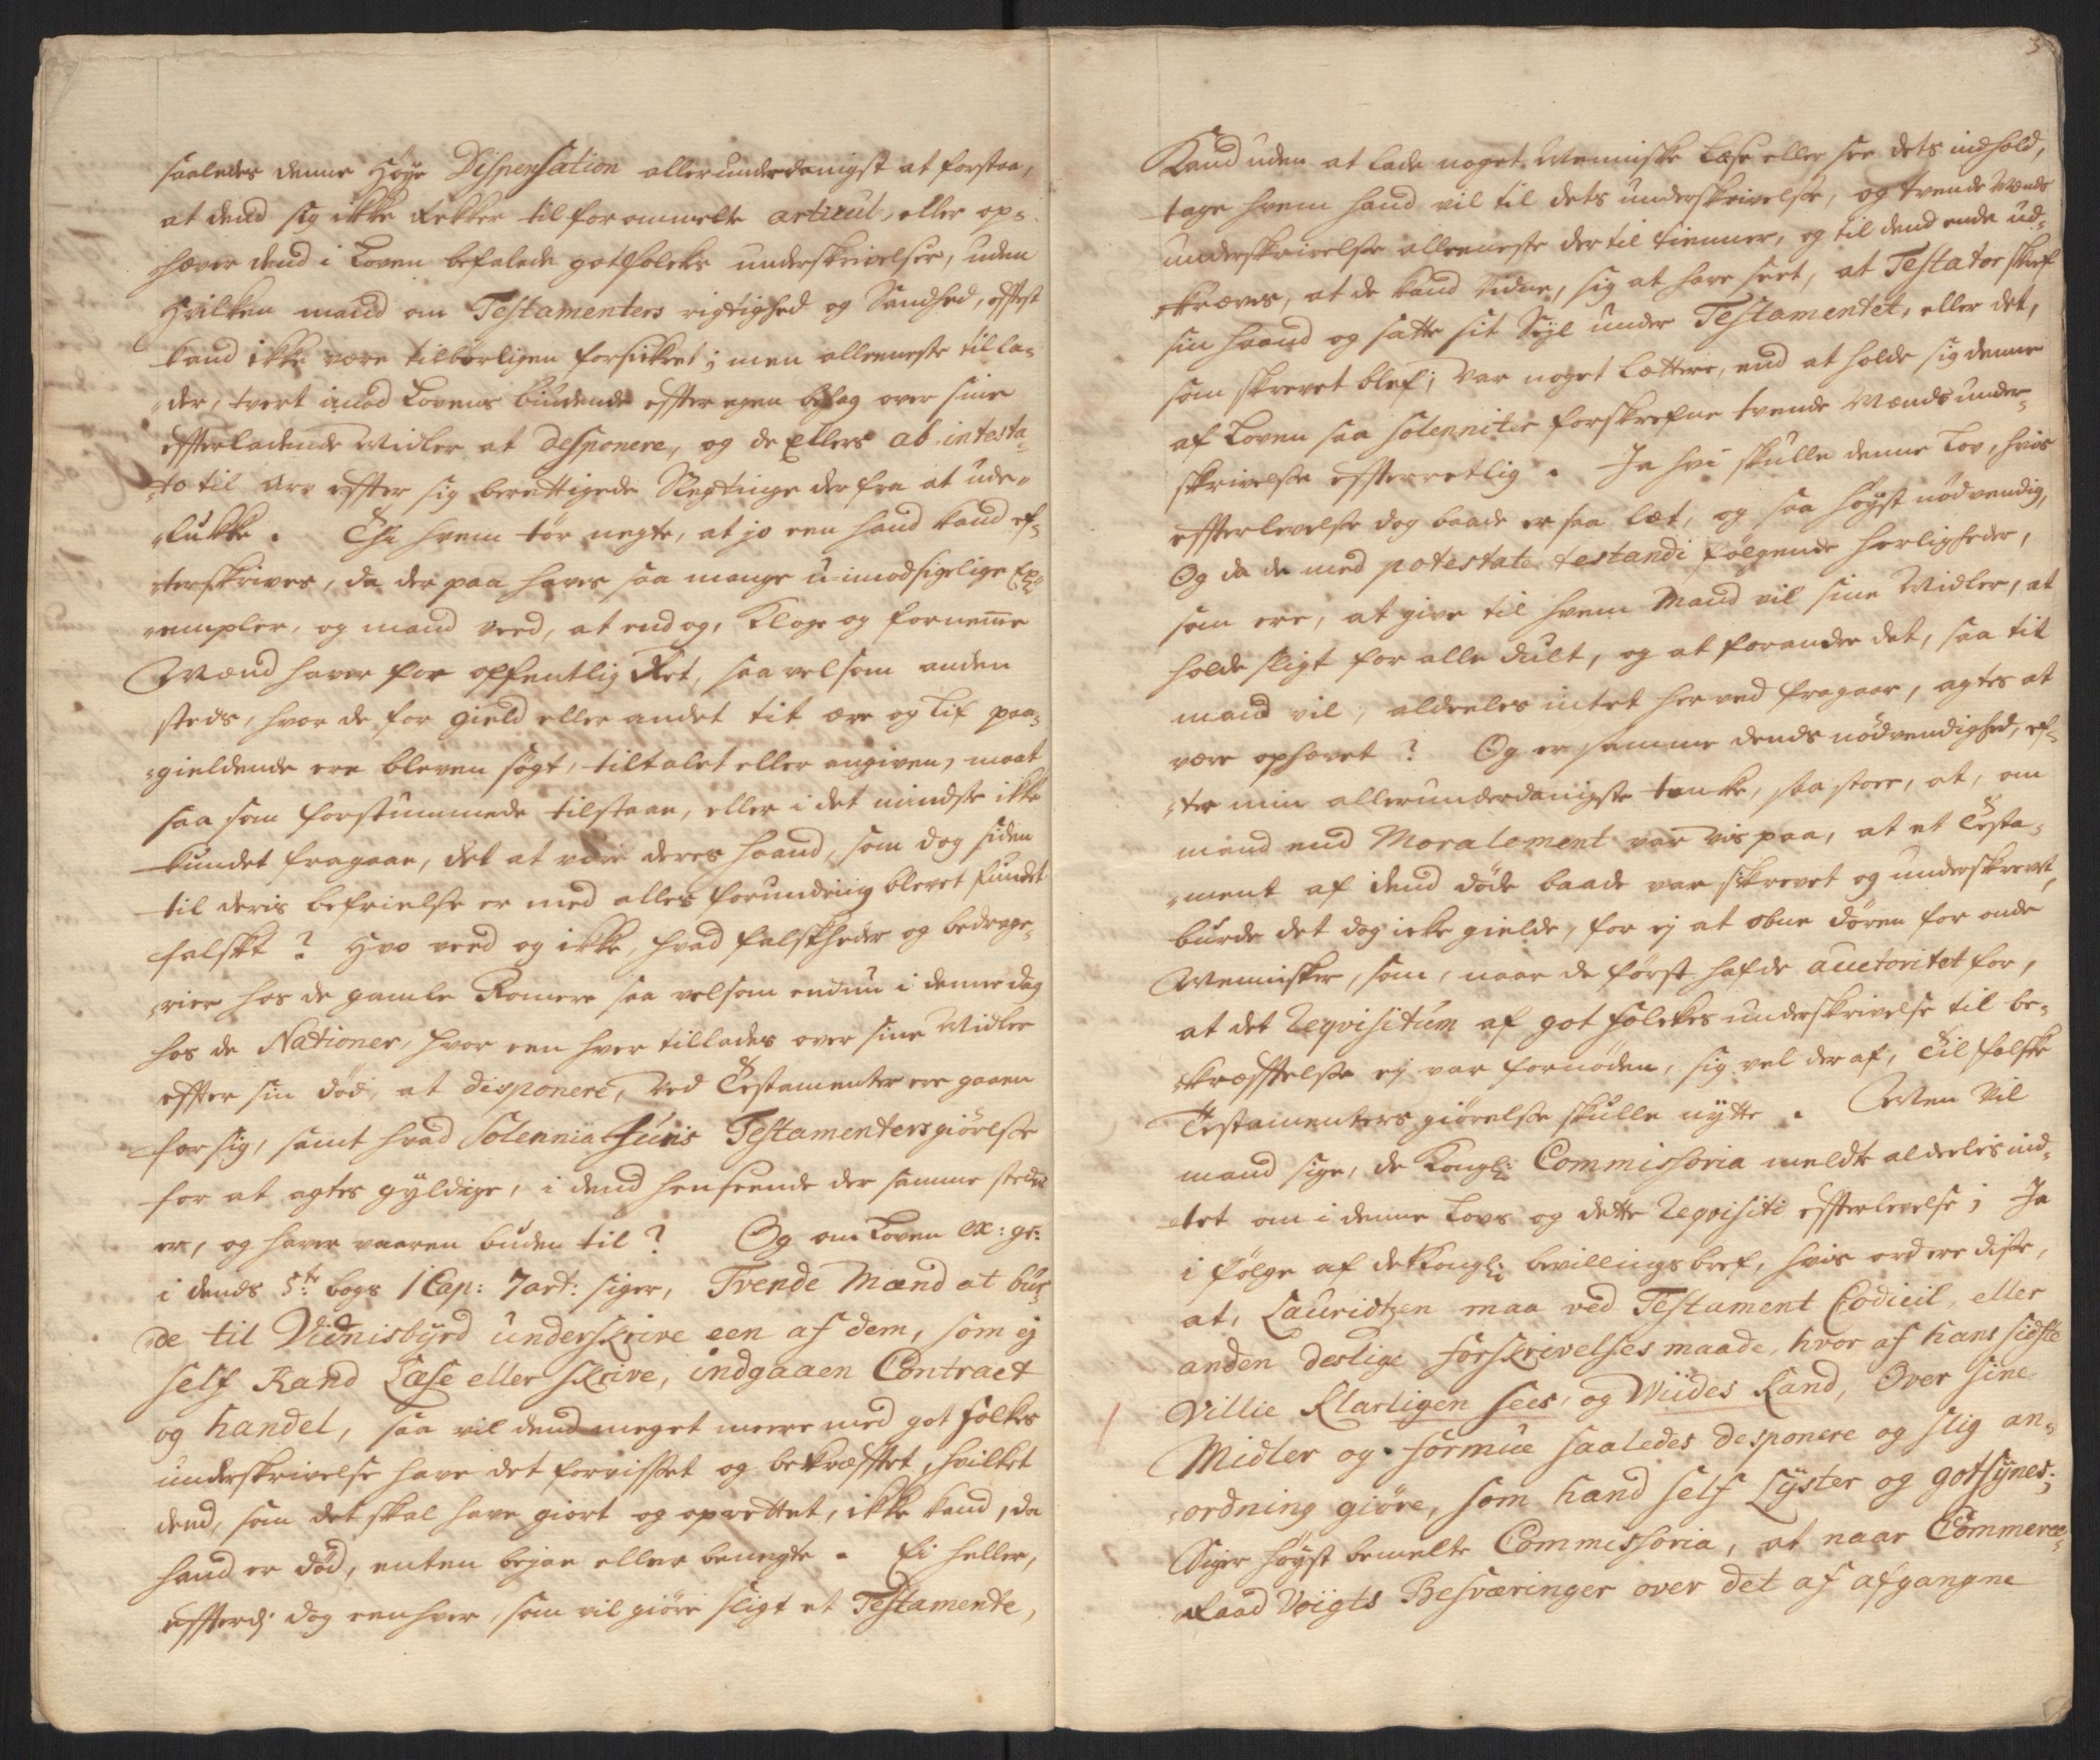 saaledes denne Høye Dispensation allerunderdanigst at forstaa,
at dend sig ikke strekker til forommelte articul, eller op-
hæver dend i Loven befalede gotfolckes underskrivelse, uden
Hvilken mand om Testamenters rigtighed og Sandhed,
kand ikke være tilbørligen forsickret; men alleeneste tilla-
der, tvert imod Lovens biudende efter egen behag over sine
effterladende Midler at desponere, og de Ellers ab intesta-
to til arv effter sig berettigede Slegtinge der fra at ude-
lukke. Thi hvem tør negte, at jo een haand kand ef-
terskrives, da der paa haves saa mange u-imodsigelige Ex-
empler, og mand veed, at end og, Kloge og fornemme
Mænd haver for offentlig Ret, saa vel som anden
steds, hvor de for gield eller andet tit ære og Lif paa-
gieldende ere bleven søgt, tiltalet eller angiven, maat
saa som forstummede tilstaae, eller i det mindste ikke
kundet fragaae, det at være deres haand, som dog siden
til deris befrielse er med alles forundring blevet fundet
falskt? Hvo veed og ikke, hvad falskheder og bedrage-
rier hos de gamle Romere saa velsom endnu i denne dag
hos de Nationer, hvor een hver tillades over sine Midler
effter sin død, at disponere, ved Testamenter ere gaaen
for sig, samt hvad Solennia Juris Testamenters giørelse
for at agtes gyldige, i dend henseende der samme steder
er, og haver vaaren buden til? Og om Loven ex: gr:
i dends 5te bogs 1 Cap: 7 art: siger, Tvende Mænd at bur-
de til Vidnisbyrd underskrive een af dem, som ej
self Kand Læse eller skrive, indgaaen Contract
og handel, saa vil dend meget meere med got folkes
underskrivelse have det forvisset og bekræfftet, hvilket
dend, som det skal have giort og oprettet, ikke kand, da
hand er død, enten bejae eller benegte. Ei heller,
efterdj dog eenhver, som vil giøre sligt et Testamente,
3
Kand uden at lade noget Menniske læse eller see dets indhold,
tage hvem hand vil til dets underskrivelse, og tvende Mænds
underskrivelse alleeneste der til tienner, og til dend ende ud-
kræves, at de kand vidne, sig at have seet, at Testator skref
sin haand og satte sit Sejl under Testamentet, eller det,
som skrevet blef; var noget lættere, end at holde sig denne
af Loven saa solenniter forskrefne tvende Mænds under-
skrivelse effterretlig. Ja hvi skulle denne Lov, hvis
effterlevelse dog baade er saa læt, og saa høyst nødvendig,
Og da de med potestate testandi følgende herligheder,
som ere, at give til hvem Mand vil sine Midler, at
holde sligt for alle dult, og at forandre det, saa tit
mand vil, aldeeles intet her ved fragaar, agtes at
være ophævet? Og er samme dends nødvendighed, ef-
ter min allerunderdanigste tanke, saa stoer, at, om
mand end Moralement var vis paa, at et Testa-
ment af dend døde baade var skrevet og underskrevet,
burde det dog icke gielde, for ej at obne døren for onde
Mennisker, som, naar de først hafde auctoritet for,
at det Reqvisitum af got folckes underskrivelse til be-
kræfftelse ej var fornøden, sig vel der af, Til falske
Testamenters giørelse skulle nytte. Men vil
mand sige, de Kongl: Commissoria meldte aldeelis ind-
tet om i denne Lovs og dette Reqvisiti effterlevelse; Ja
i følge af de Kongl: bevillingsbref, hvis ord ere disse,
at, Lauridtzen maa ved Testament Codicil, eller
anden deslige forskrivelses maade, hvor af hans sidste
Villie Klarligen sees, og Wiides Kand, Over sine
Midler og formue saaledes desponere og slig an-
ordning giøre, som hand self Lyster og gotsynes;
Siger høyst bemelte Commissoria, at naar Commerce-
Raad Voigts Besværinger over det af afgangne